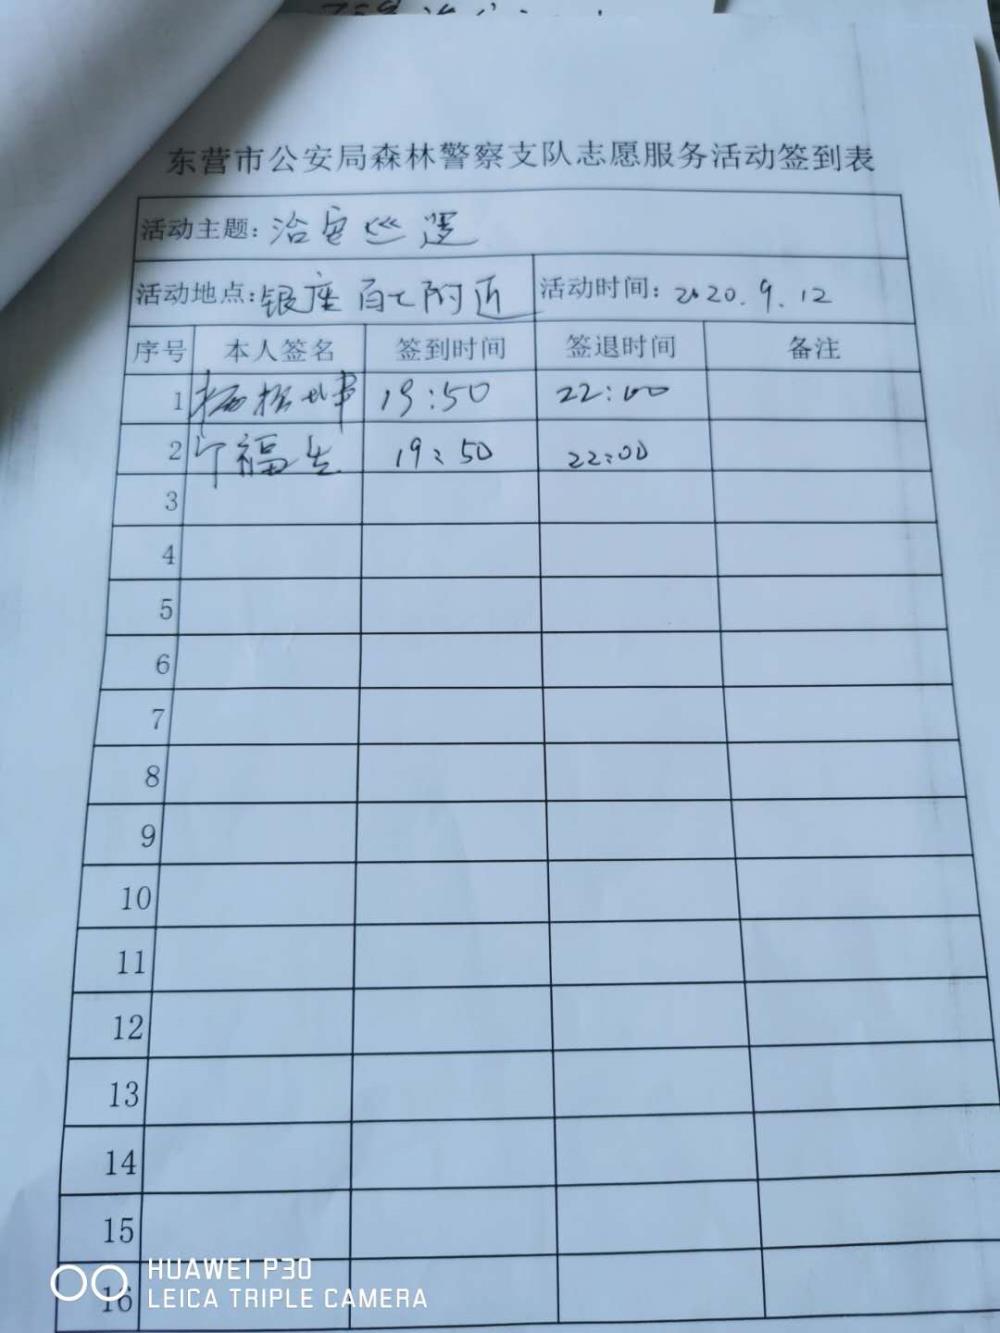 东营市公安局森林警察支队志愿服务活动签到表
活动主题:治安巡逻
活动地点:银座百大附近 活动时间:2020.9.12
序号 本人签名 签到时间 签退时间 备注
1 19:50 22:00
2 福生 19:50 22:00
3
4
5
6
7
8
9
10
11
12
13
14
15
16
HUAWEI P30
LEICA TRIPLE CAMERA